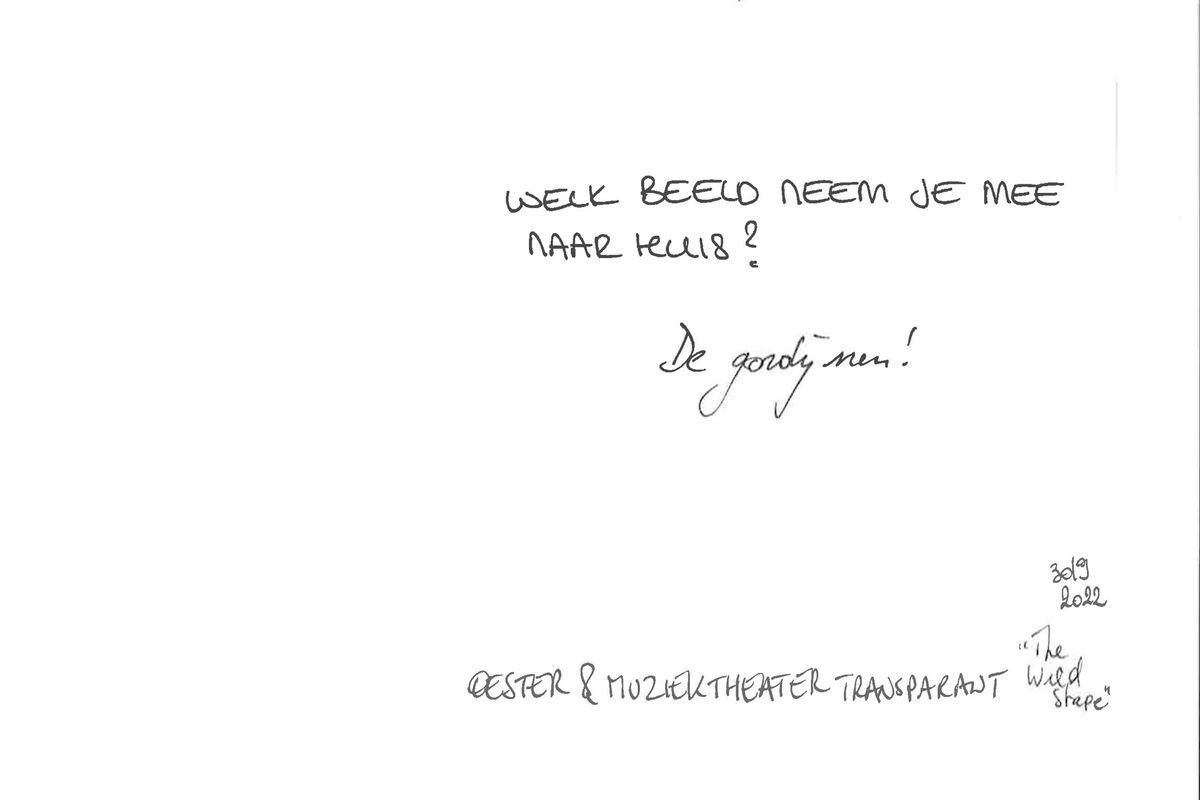 WELK BEELD NEEM JE MEE
NAAR HUIS?
De gordijnen!
30/9
2022
OESTER & MUZIEKTHEATER TRANSPARANT
"The
Wild
Shape"